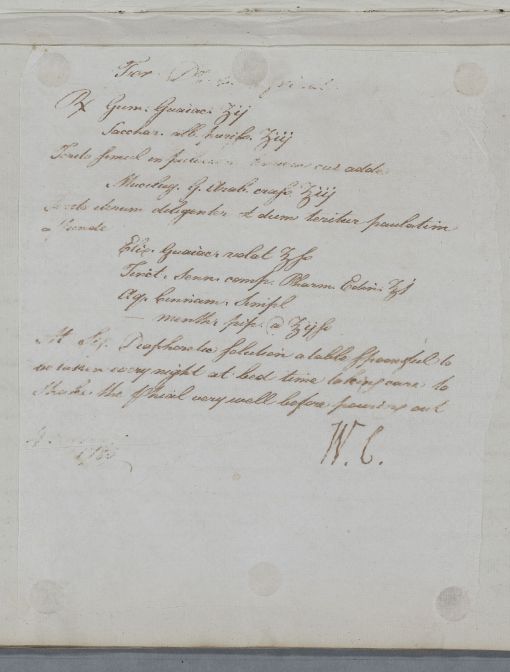 For
℞ Gum. Guaiac. ʒij
Sacchar. alb. puriss. ʒiij
Terito simul in pulverem cui adde
Mucilag. G. Arab. crass. ʒiij
iterum diligenter & dum teritur paulatim
affunde
Elix. Guaiac. volat ℥ss
Tinct. Senn. comp. Pharm. Edin. ℥i
Aq. Cinnam. Simpl
— menth. pip. a ℥ijss
M. Sig. Diaphoretic Solution a table spoonful to
be taken every night at bed time taking care to
shake the Phial very well before pouring out
W. C.